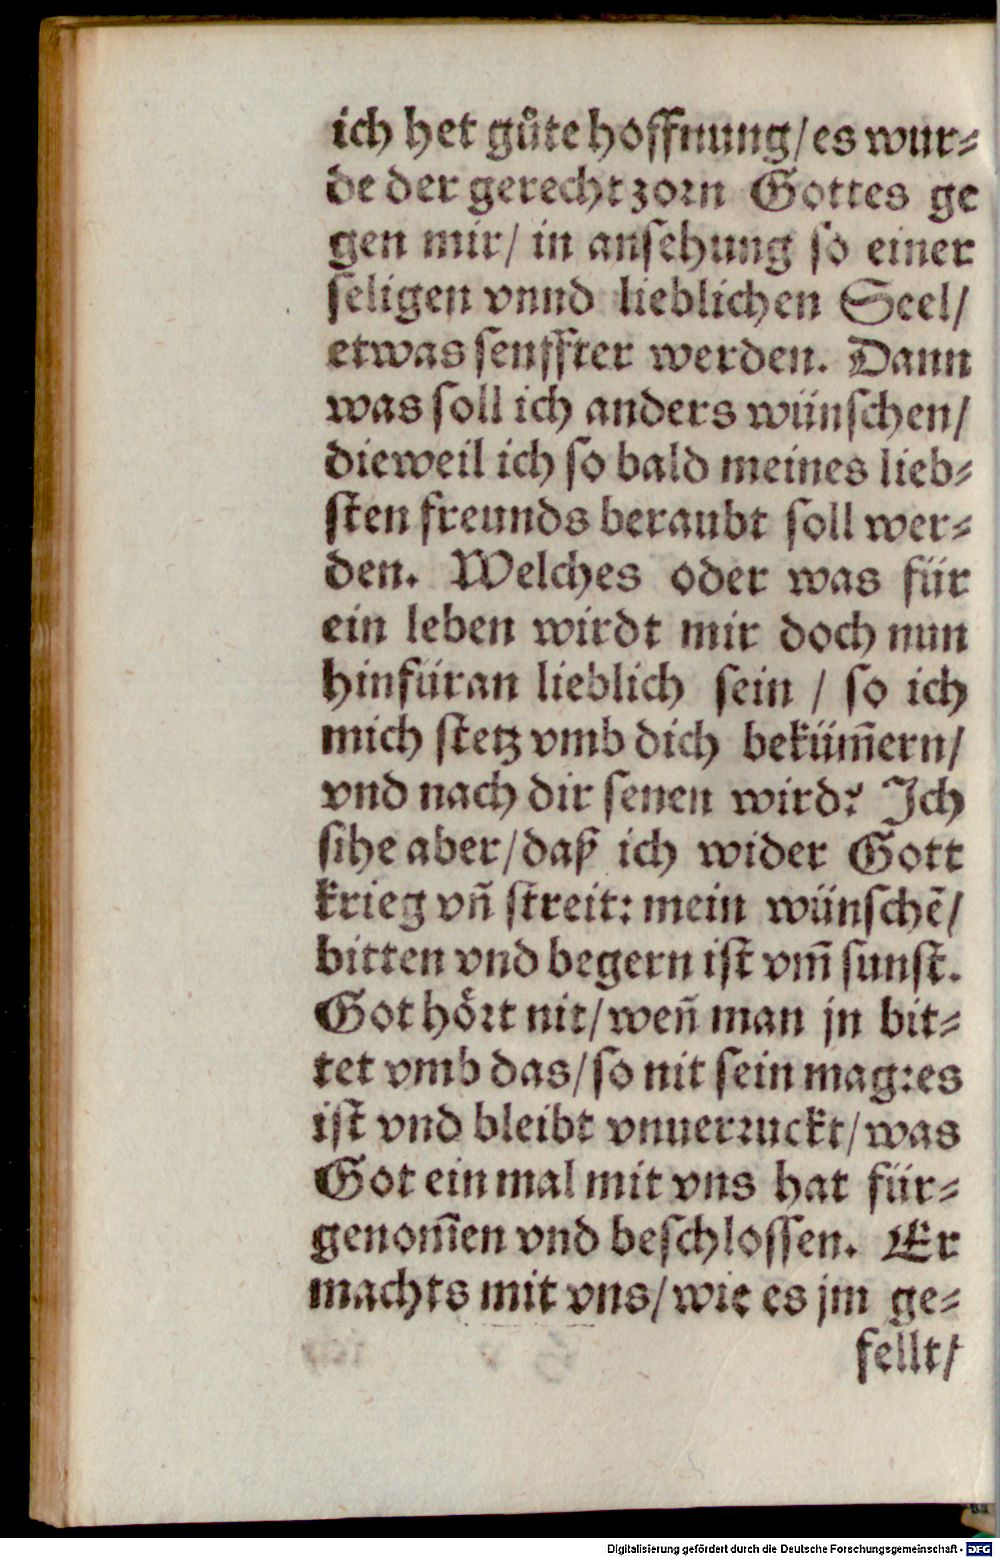 ich het gůte hoffnung/ es wur⸗
de der gerecht zorn Gottes ge
gen mir/ in ansehung so einer
seligen vnnd lieblichen Seel/
etwas senffter werden. Dann
was soll ich anders wünschen/
dieweil ich so bald meines lieb⸗
sten freunds beraubt soll wer⸗
den. Welches oder was für
ein leben wirdt mir doch nun
hinfüran lieblich sein / so ich
mich stetz vmb dich beküm̃ern/
vnd nach dir senen wird? Ich
sihe aber/ daß ich wider Gott
krieg vñ streit: mein wünschẽ/
bitten vnd begern ist vm̃ sunst.
Got hört nit/ weñ man jn bit⸗
tet vmb das/ so nit sein mag: es
ist vnd bleibt vnuerruckt/ was
Got ein mal mit vns hat für⸗
genom̃en vnd beschlossen. Er
machts mit vns/ wie es jm ge⸗
fellt/
Digitalisierung gefördert durch die Deutsche Forschungsgemeinschaft - DFG